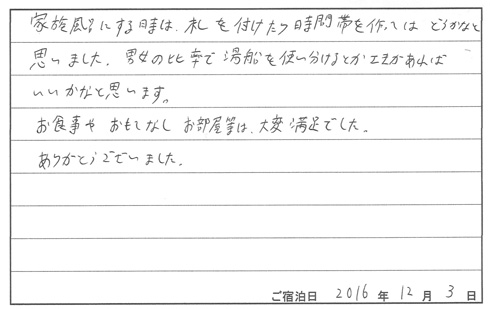 家族風呂にする時は、札を付けたり時間帯を作ってはどうかなと
思いました。男女の比率で湯船を使い分けるとか工夫があれば
いいかなと思います。
お食事やおもてなしお部屋等は、大変満足でした。
ありがとうございました。
ご宿泊日 2016 年 12 月 3 日